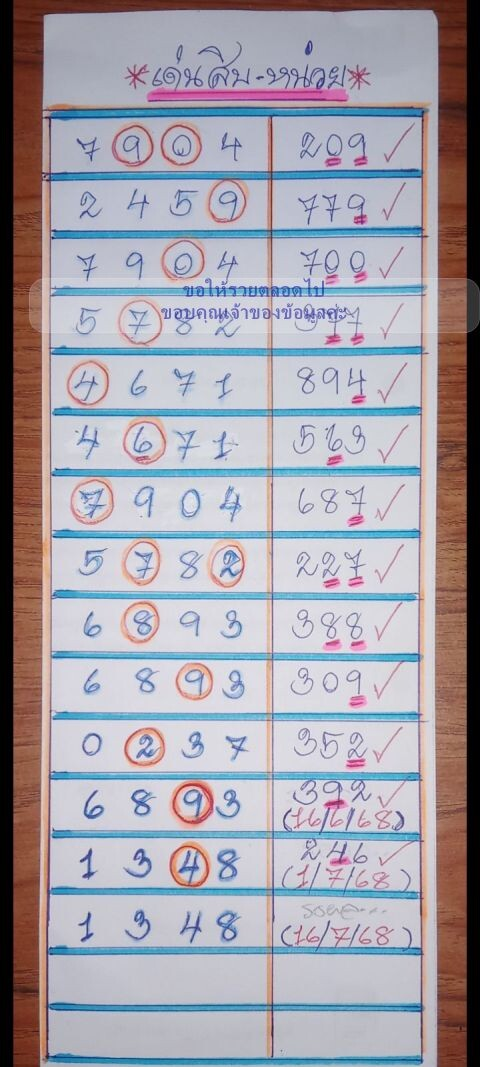 *เด่นสิบ-หน่วย*
7 9 0 4 209 ✓
2 4 5 9 779 ✓
7 9 0 4 700 ✓
ขอให้รวยตลอดไป
ขอบคุณเจ้าของข้อมูลค่ะ
5 7 8 2 377 ✓
4 6 7 1 894 ✓
4 6 7 1 563 ✓
7 9 0 4 687 ✓
5 7 8 2 227 ✓
6 8 9 3 388 ✓
6 8 9 3 309 ✓
0 2 3 7 352 ✓
6 8 9 3 392 ✓
(16/6/68)
1 3 4 8 246 ✓
(1/7/68)
1 3 4 8
(16/7/68)